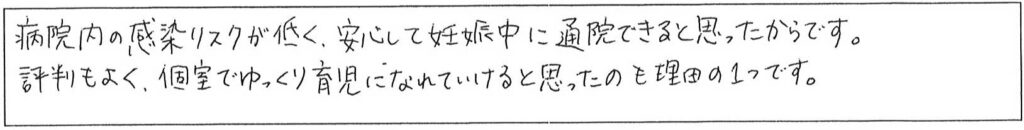 病院内の感染リスクが低く、安心して妊娠中に通院できると思ったからです。
評判もよく、個室でゆっくり育児になれていけると思ったのも理由の1つです。